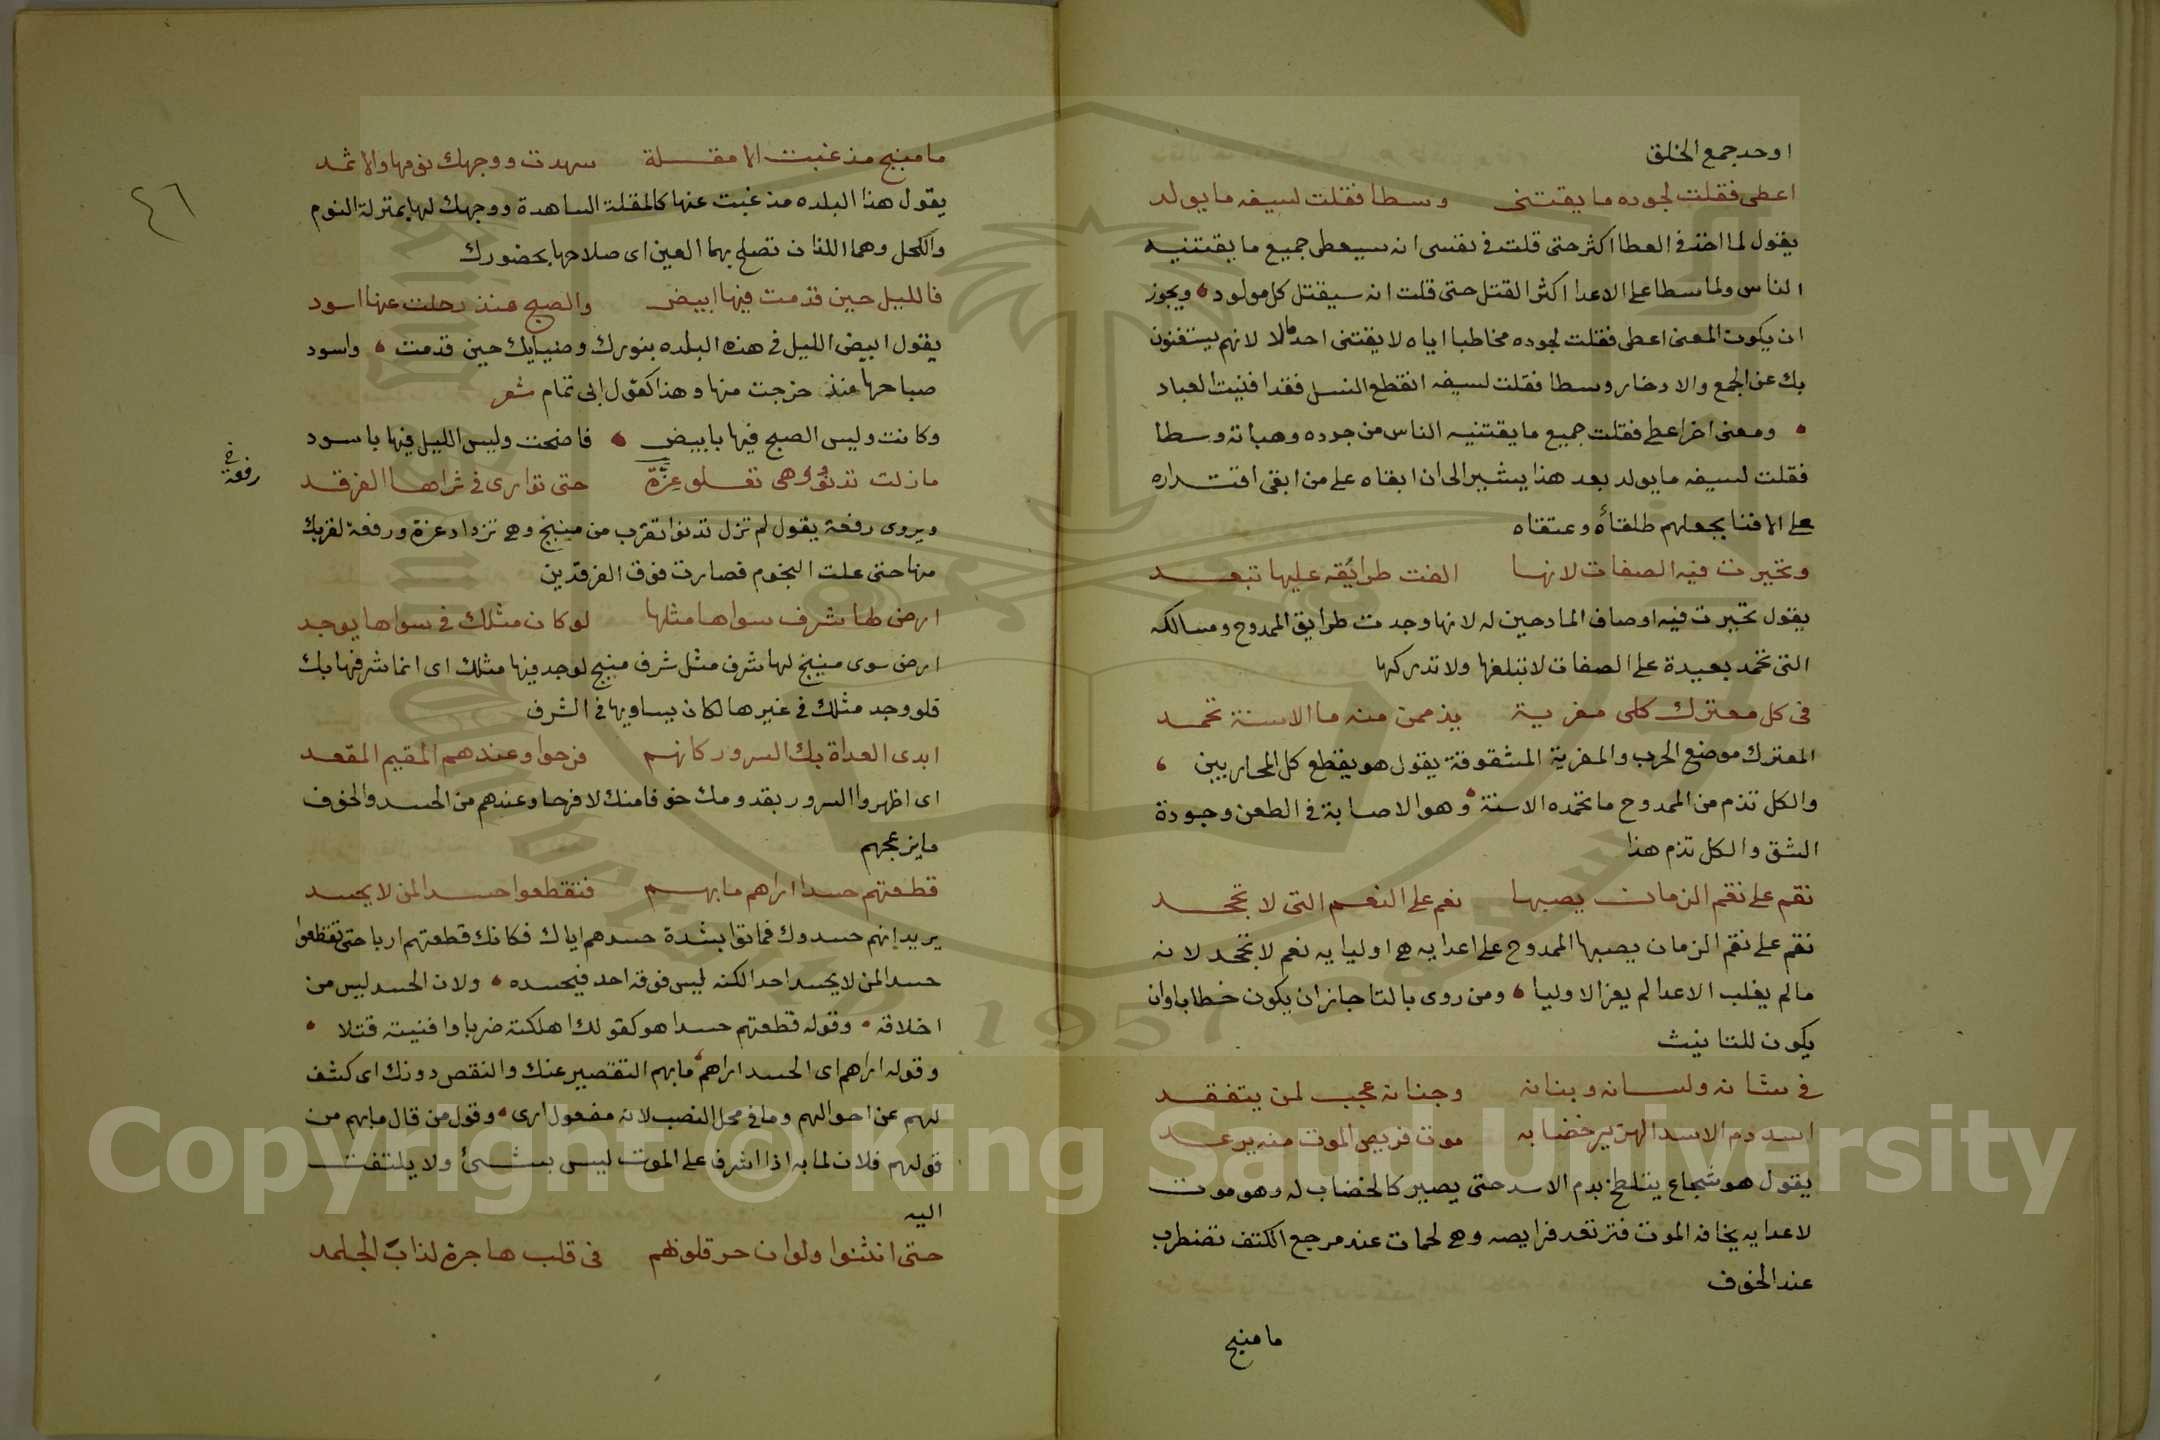 اوحد جمع الخلق
اعطى فقلت لجوده ما يقتنى وسطا فقلت لسيفه ما يولد
يقول لما اخذ في العطا اكثر حتى قلت في نفسى انه سيعطى جميع ما يقتنيه
الناس ولما سطا على الاعدا اكثر القتل حتى قلت انه سيقتل كل مولود ويجوز
ان يكون المعنى اعطى فقلت لجوده مخاطبا اياه لا يقتنى احد مالا لانهم يستغنون
بك عن الجمع والادخار وسطا فقلت لسيفه انقطع النسل فقد افنيت العباد
ومعنى اخر اعطى فقلت جميع ما يقتنيه الناس من جوده وهباته وسطا
فقلت لسيفه ما يولد بعد هذا يشير الى ان ابقاه على من ابقى اقتداره
على الافنا يجعلهم طلقاء وعتقاه
وتحيرت فيه الصفات لانها الفت طرايقه عليها تبعد
يقول تحيرت فيه اوصاف المادحين له لانها وجدت طرايق الممدوح ومسالكه
التى تحمد بعيدة على الصفات لا تبلغها ولا تدركها
فى كل معترك كلى مفرية يذممن منه ما الاسنة تحمد
المعترك موضع الحرب والمفرية المشقوقة يقول هو يقطع كل المحاربين
والكل تذم من الممدوح ما تحمده الاسنة وهو الاصابة فى الطعن وجودة
الشق والكل تذم هذا
نقم على نقم الزمان يصبها نعم على النعم التى لا تجحد
نقم على نقم الزمان يصبها الممدوح على اعدايه هى اوليايه نعم لا تجحد لانه
مالم يغلب الاعدا لم يعز الاوليا ومن روى بالتا جاز ان يكون خطابا وان
يكون للتانيث
فى شانه ولسانه وبنانه وجنانه عجب لمن يتفقد
اسد دم الاسد الهزبر خضابه موت فريص الموت منه يرعد
يقول هو شجاع يتلطخ بدم الاسد حتى يصير كالخضاب له وهو موت
لاعدايه يخافه الموت فترتعد فرايصه وهى لحمات عند مرجع الكتف تضطرب
عند الخوف
ما منبج
٤٦
ما منبج مذ غبت الا مقلة سهدت ووجهك نومها والاثمد
يقول هذا البلده مذ غبت عنها كالمقلة الساهدة ووجهك لها بمنزلة النوم
والكحل وهما اللذان تصلح بهما العين اى صلاحها بحضورك
فالليل حين قدمت فيها ابيض والصبح منذ رحلت عنها اسود
يقول ابيض الليل فى هذه البلده بنورك وضيايك حين قدمت واسود
صباحها منذ خرجت منها وهذا كقول ابى تمام شعر
وكانت وليس الصبح فيها بابيض فاضحت وليس الليل فيها باسود
ما زلت تدنو وهى تعلو عزة حتى توارى فى ثراها الفرقد
رفعة خ
ويروى رفعة يقول لم تزل تدنو اتقرب من منبج وهى تزداد عزة ورفعة لقربك
منها حتى علت النجوم فصارت فوق الفرقدين
ارض لها شرف سواها مثلها لو كان مثلك فى سواها يوجد
ارض سوى منبج لها شرف مثل شرف منبج لو وجد فيها مثلك اى انما شرفها بك
فلو وجد مثلك فى غيرها لكان يساويها فى الشرف
ابدى العداة بك السرور كانهم فرحوا وعندهم المقيم المقعد
اى اظهروا السرور بقدومك خوفا منك لا فرحا وعندهم من الحسد والخوف
ما يزعجهم
قطعتهم حسدا اراهم ما بهم فتقطعوا حسدا لمن لا يحسد
يريد انهم حسدوك فماتوا بشدة حسدهم اياك فكانك قطعتهم اربا حتى تقطعوا
حسدا لمن لا يحسد احدا لكنه ليس فوقه احد فيحسده ولان الحسد ليس من
اخلاقه وقوله قطعتهم حسدا هو كقولك اهلكته ضربا وافنيته قتلا
وقوله اراهم اى الحسد اراهم ما بهم التقصير عنك والنقص دونك اى كشف
لهم عن احوالهم وما فى محل النصب لانه مفعول ارى وقول من قال ما بهم من
قولهم فلان لما به اذا اشرف على الموت ليس بشئ ولا يلتفت
اليه
حتى انثنوا ولو ان حر قلوبهم فى قلب هاجرة لذاب الجلمد
Copyright © King Saud University
1957